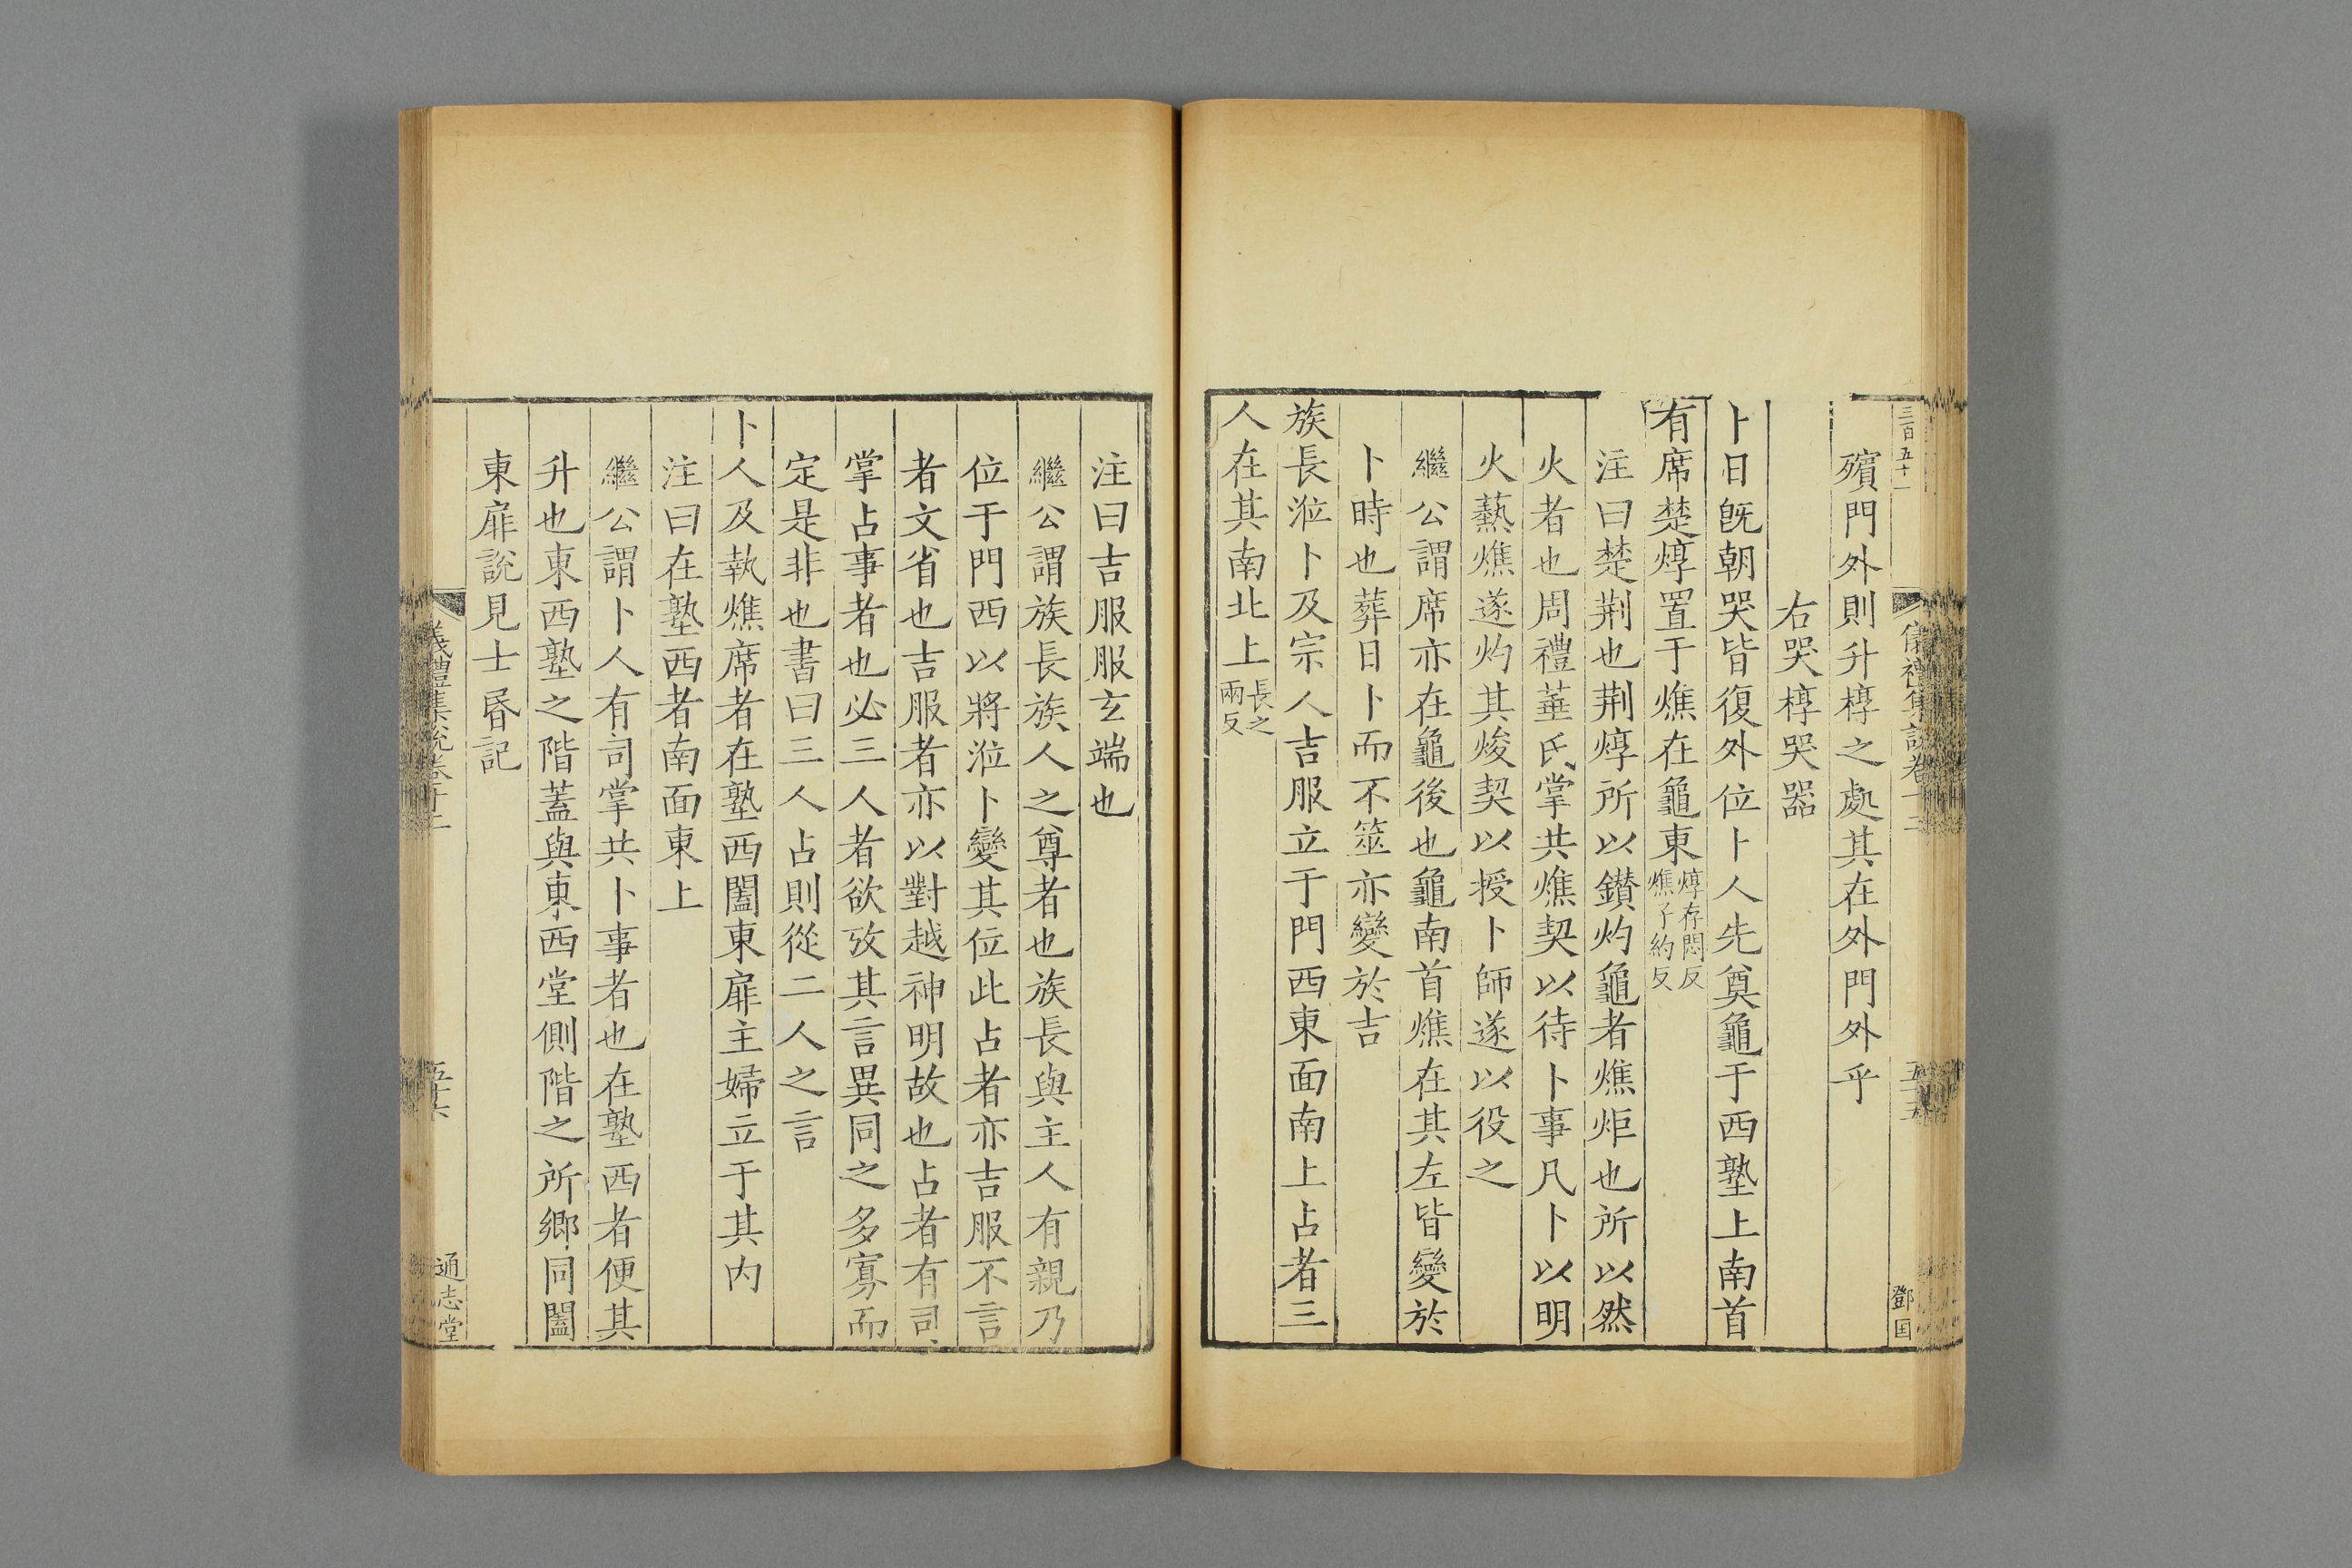 三百五十一
儀禮集說卷十二
五十五
鄧国
殯門外則升椁之處其在外門外乎
右哭椁哭器
卜日旣朝哭皆復外位卜人先奠龜于西塾上南首
有席楚焞置于燋在龜東焞存悶反燋子約反
注曰楚荆也荆焞所以鑚灼龜者燋炬也所以然
火者也周禮菙氏掌共燋契以待卜事凡卜以明
火爇燋遂灼其焌契以授卜師遂以役之
繼公謂席亦在龜後也龜南首燋在其左皆變於
卜時也葬日卜而不筮亦變於吉
族長涖卜及宗人吉服立于門西東面南上占者三
人在其南北上長之兩反
注曰吉服服玄端也
繼公謂族長族人之尊者也族長與主人有親乃
位于門西以將涖卜變其位此占者亦吉服不言
者文省也吉服者亦以對越神明故也占者有司
掌占事者也必三人者欲攷其言異同之多寡而
定是非也書曰三人占則從二人之言
卜人及執燋席者在塾西闔東扉主婦立于其内
注曰在塾西者南面東上
繼公謂卜人有司掌共卜事者也在塾西者便其
升也東西塾之階蓋與東西堂側階之所鄉同闔
東扉說見士昏記
儀禮集說卷十二
五十六
通志堂